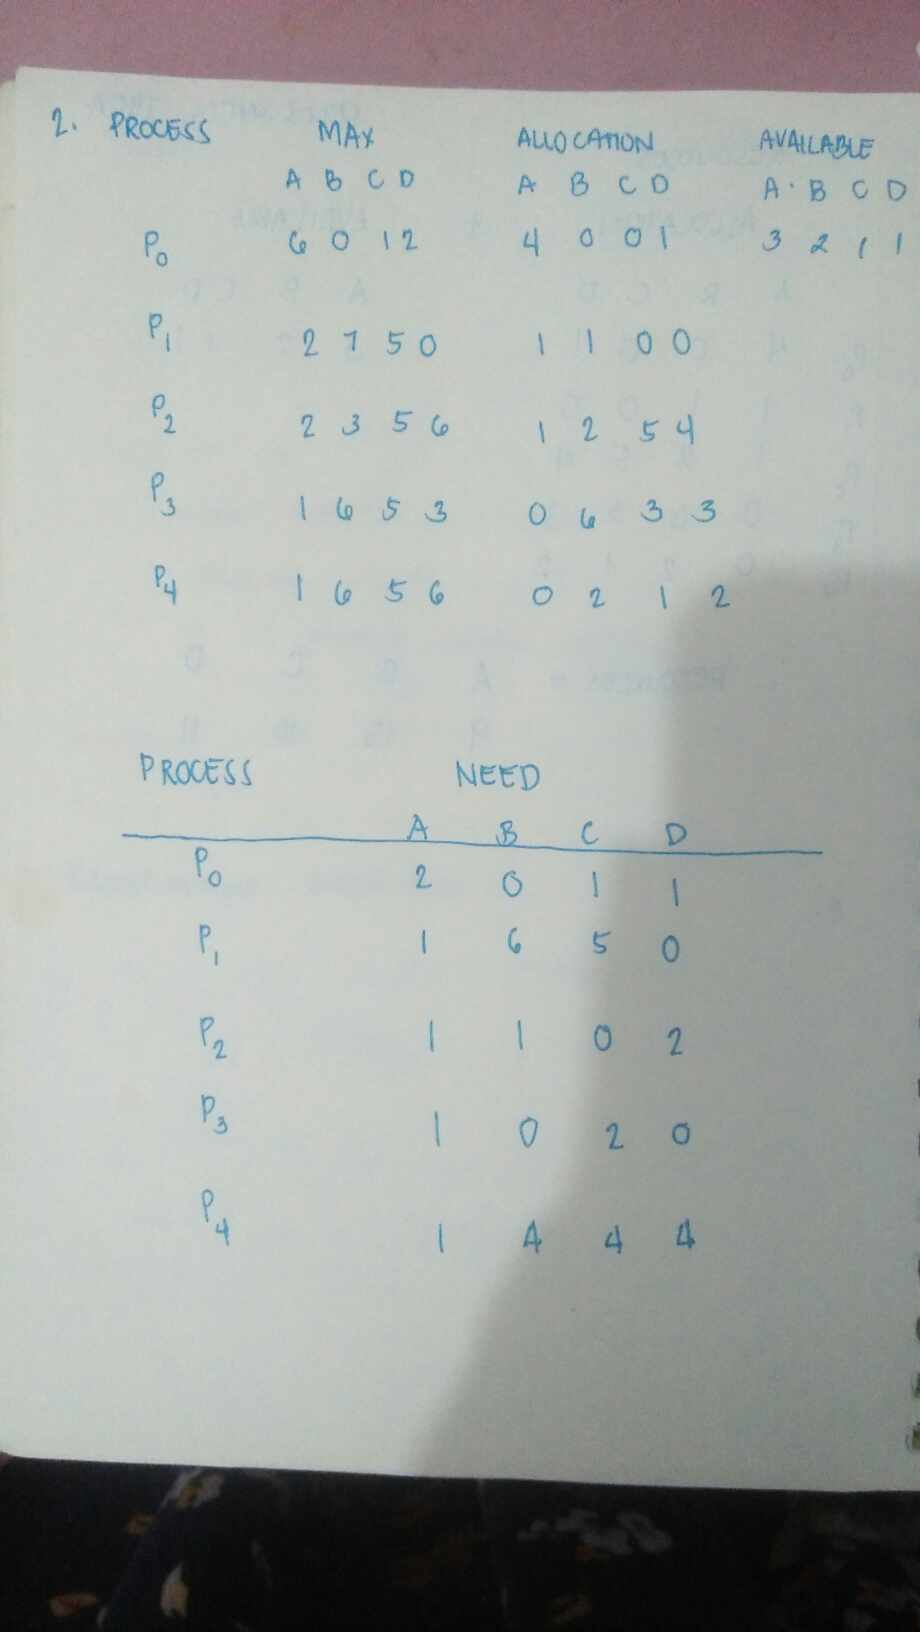 2. PROCESS MAX ALLOCATION AVAILABLE
A B C D A B C D A B C D
P0 6 0 1 2 4 0 0 1 3 2 1 1
P1 2 7 5 0 1 1 0 0
P2 2 3 5 6 1 2 5 4
P3 1 6 5 3 0 6 3 3
P4 1 6 5 6 0 2 1 2
PROCESS NEED
A B C D
P0 2 0 1 1
P1 1 6 5 0
P2 1 1 0 2
P3 1 0 2 0
P4 1 4 4 4